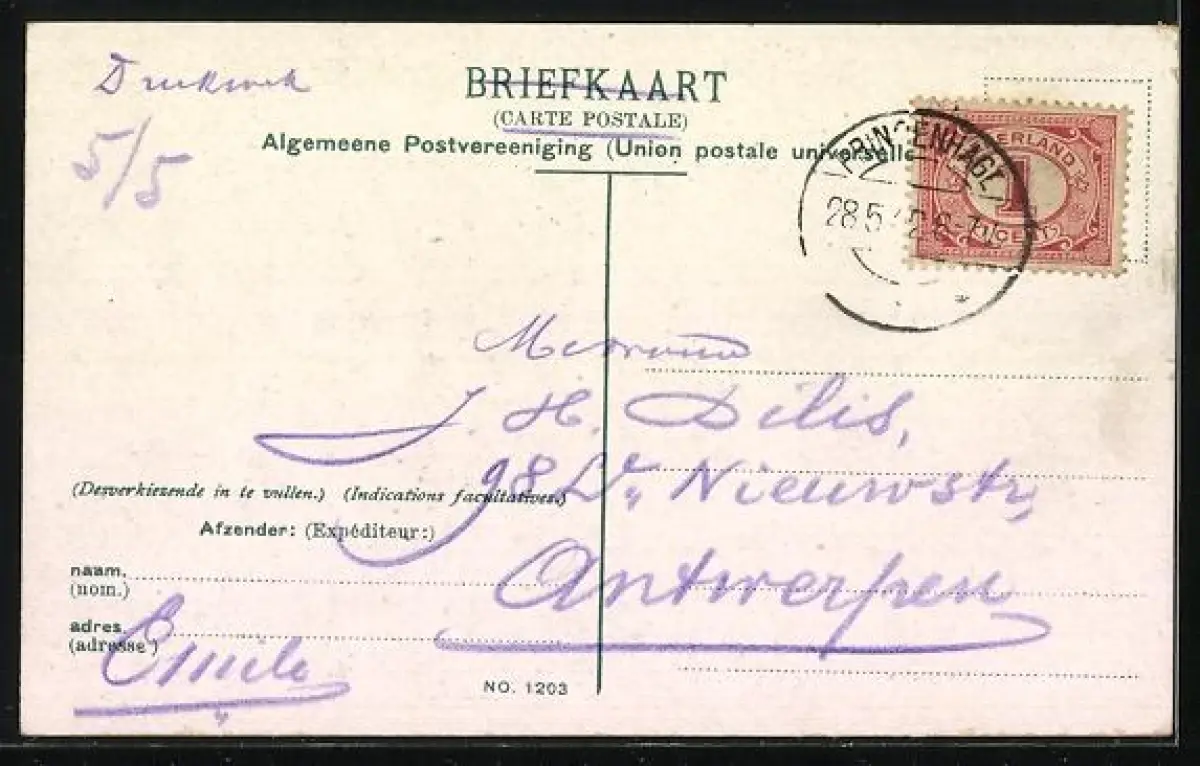 Drukwerk
5/5
BRIEFKAART
(CARTE POSTALE)
Algemeene Postvereeniging (Union postale universelle
PRINCENHAGE
28.5
NEDERLAND
1
CENT
J. H. Dilis,
98 Nieuwstr,
Antwerpen
(Desverkiezende in te vullen.) (Indications facultatives.)
Afzender: (Expéditeur:)
naam.
(nom.)
adres.
(adresse)
Emile
NO. 1203